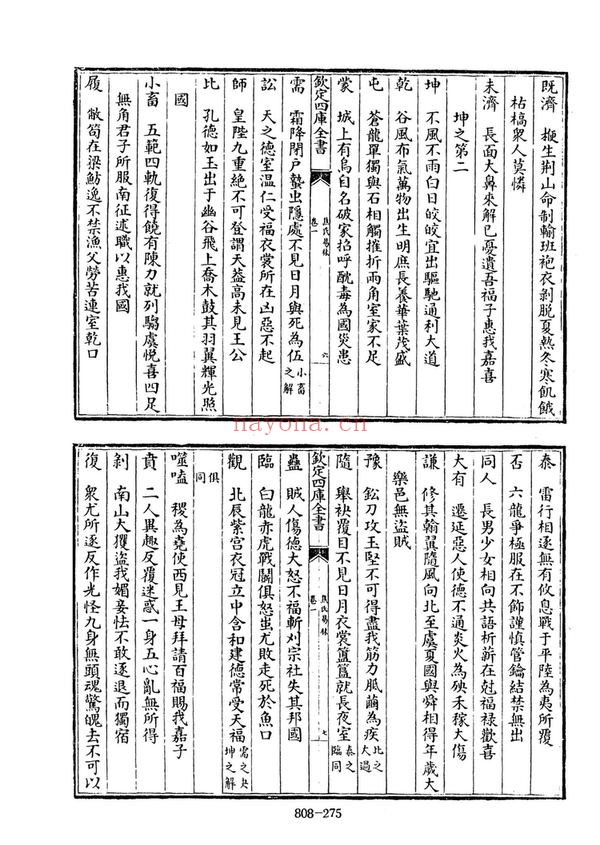 既濟　擬生荆山命制輸班袍衣剥脱夏熱冬寒飢餓
枯槁衆人莫憐
未濟　長面大鼻來解已憂遺吾福子惠我嘉喜
坤之第二
坤　不風不雨白日皎皎宜出驅馳通利大道
乾　谷風布氣萬物出生明庶長養華葉茂盛
屯　蒼龍單獨與石相觸摧折兩角室家不足
蒙　城上有烏自名破家招呼酖毒為國災患
欽定四庫全書
焦氏易林
卷一
六
需　霜降閉戸蟄虫隱處不見日月與死為伍小畜之解
訟　天之德室温仁受福衣裳所在凶惡不起
師　皇陛九重絶不可登謂天葢高未見王公
比　孔德如玉出于幽谷飛上喬木鼓其羽翼輝光照
國
小畜　五範四軌復得饒有陳力就列騶虞悦喜四足
無角君子所服南征述職以惠我國
履　敝笱在梁魴逸不禁漁父勞苦連室乾口
泰　雷行相逐無有攸息戰于平陸為夷所覆
否　六龍爭極服在不飾謹慎管鑰結禁無出
同人　長男少女相向共語析薪在尅福禄歡喜
大有　遷延惡人使德不通炎火為殃禾稼大傷
謙　修其翰翼隨風向北至虞夏國與舜相得年歲大
樂邑無盜賊
豫　鈆刀攻玉堅不可得盡我筋力胝繭為疾比之大過
隨　舉袂覆目不見日月衣裳簠簋就長夜室泰之臨同
欽定四庫全書
焦氏易林
卷一
七
蠱　賊人傷德大怒不福斬刈宗社失其邦國
臨　白龍赤虎戰鬭俱怒蚩尤敗走死於魚口
觀　北辰紫宫衣冠立中含和建德常受天福需之夬坤之解
俱同
噬嗑　稷為堯使西見王母拜請百福賜我嘉子
賁　二人異趣反覆迷惑一身五心亂無所得
剥　南山大玃盜我媚妾怯不敢逐退而獨宿
復　衆尤所逐反作光怪九身無頭魂驚魄去不可以
808-275
nayona.cn